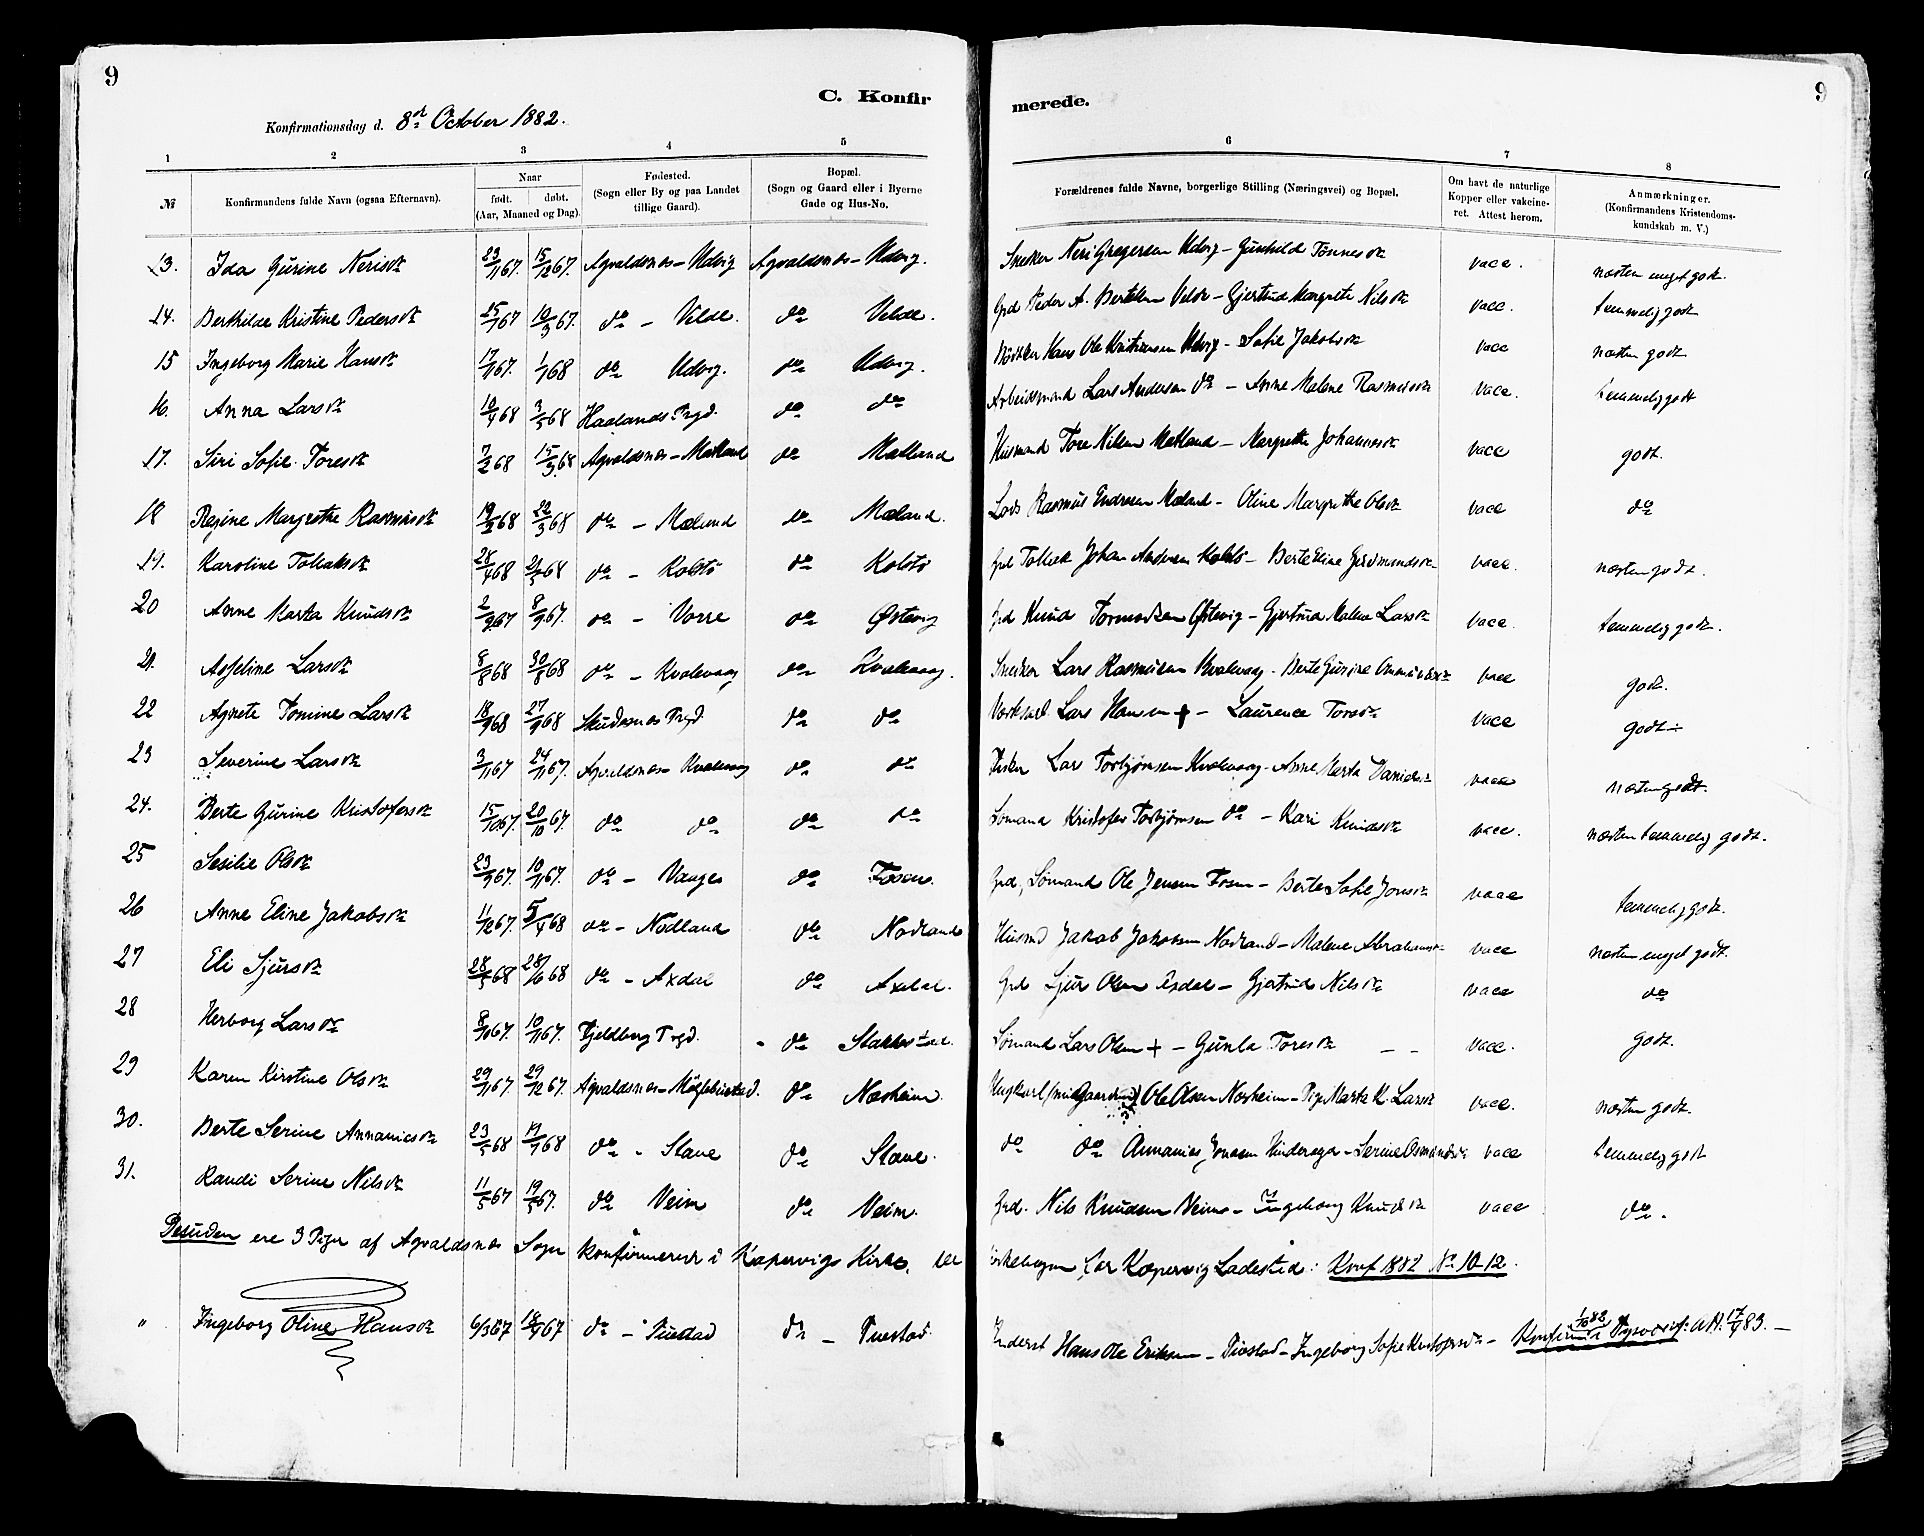 9
9
C. Konfir
merede.
Konfirmationsdag d. 8de October 1882.
1 2 3 4 5 6 7 8
№ Konfirmandens fulde Navn (ogsaa Efternavn). Naar født. døbt. (Aar, Maaned og Dag). Fødested. (Sogn eller By og paa Landet tillige Gaard). Bopæl. (Sogn og Gaard eller i Byerne Gade og Hus-No. Forældrenes fulde Navne, borgerlige Stilling (Næringsvei) og Bopæl. Om havt de naturlige Kopper eller vakcineret. Attest herom. Anmærkninger. (Konfirmandens Kristendomskundskab m. V.)
13. Ida Gurine Nerisdt 23/11 67. 15/12 67. Agvaldsnæs - Udvig Agvaldsnæs - Udvig. Snedker Neri Gregersen Udvig - Gunhilde Tønnesdt vacc. næsten meget godt.
14. Berthilde Kristine Pedersdt 25/1 67 10/3 67. do - Velde. do Velde. Grd Peder A. Bertelsen Velde - Gjertrud Margrete Nilsdt vacc. temmelig godt
15 Ingeborg Marie Hansdt 17/11 67. 1/1 68 do Udvig. do Udvig. Bødtker Hans Ole Kristiansen Udvig - Sofie Jakobsdt vacc næsten godt
16. Anna Larsdt 10/4 68 3/5 68 Haalands Prgd. do do Arbeidsmand Lars Andersen do - Anne Malene Rasmusdt vacc. temmelig godt
17. Siri Sofie Toresdt 7/2 68 15/3 68 Agvaldsnæs - Matland do Matland Husmand Tore Nilsen Matland - Margrethe Johannesdt vacc godt.
18 Regine Margrethe Rasmusdt 19/2 68 22/3 68 do - Mæland do Mæland. Lods Rasmus Endresen Mæland - Oline Margrethe Olsdt vacc do
19. Karoline Tollaksdt 28/4 68 21/5 68 do - Kolstø do Kolstø Grd Tollak Johan Andersen Kolstø - Berte Eline Gudmundsdt vacc. næsten godt.
20 Anne Marta Knudsdt 2/9 67 8/9 67. do - Vorre do Østevig Grd Knud Tormodsen Østevig - Gjertrud Malene Larsdt vacc. temmelig godt.
21. Asseline Larsdt 8/8 68 30/8 68 do - Kvalevaag do Kvalevaag. Snedker Lars Rasmusen Kvalevaag - Berte Gurine Ommundsdt vacc godt.
22 Agnete Tomine Larsdt 18/9 68 27/9 68 Skudesnæs Prgd. do do Lars Hansen + - Laurence Toresdt vacc godt
23 Severine Larsdt 3/11 67 24/11 67. Agvaldsnæs - Kvalevaag do do Fisker Lars Torbjørnsen Kvalevaag - Anne Marta Danielsdt vacc næsten godt.
24. Berte Gurine Kristofersdt 15/10 67. 20/10 67. do do do do Sømand Kristofer Torbjørnsen do - Kari Knudsdt vacc. næsten temmelig godt.
25 Sesilie Olsdt 23/9 67. 10/11 67. do - Vaage do Fosen. Grd, Sømand Ole Jensen Fosen - Berte Sofie Jonsdt vacc temmelig godt.
26 Anne Eline Jakobsdt 11/12 67. 5/4 68 do - Nodland do Nodland Husmd Jakob Jakobsen Nodland - Malene Abrahamsdt vacc næsten meget godt.
27 Eli Sjursdt 28/5 68 28/6 68 do - Axdal do Axdal. Grd Sjur Olsen Axdal - Gjertrud Nilsdt vacc do
28 Herborg Larsdt 8/10 67. 10/11 67. Fjeldberg Prgd. do Stakkestad. Sømand Lars Olsen + - Gunla Toresdt - - vacc. godt.
29 Karen Kirstine Olsdt 29/11 67 29/12 67. Agvaldsnæs - Møglebustad. do Norheim. Ungkarl Ole Olsen Norheim - Pige Marta K. Larsdt vacc. næsten godt.
30. Berte Serine Annaniasdt 23/5 68 19/7 68 do - Stave do Stave. do do Annanias Jonasen Hinderager - Serine Osmundsdt vacc temmelig godt
31. Randi Serine Nilsdt 11/5 67 19/5 67. do Veim do Veim. Grd. Nils Knudsen Veim - Ingeborg Knudsdt vacc do.
Desuden ere 3 Piger af Agvaldsnæs Sogn konfirmerede i Kopervigs Kirke, se Kirkebogen for Kopervig Ladested: Konf 1882 No 10-12.
" Ingeborg Oline Hansdt 6/3 67 18/4 67 do - Tuestad do - Tuestad. Inderst Hans Ole Eriksen - Tuestad - Ingeborg Sofie Kristofersdt - Konfirm. 1/10 82 i Tysvær Att. 17/4 83. -